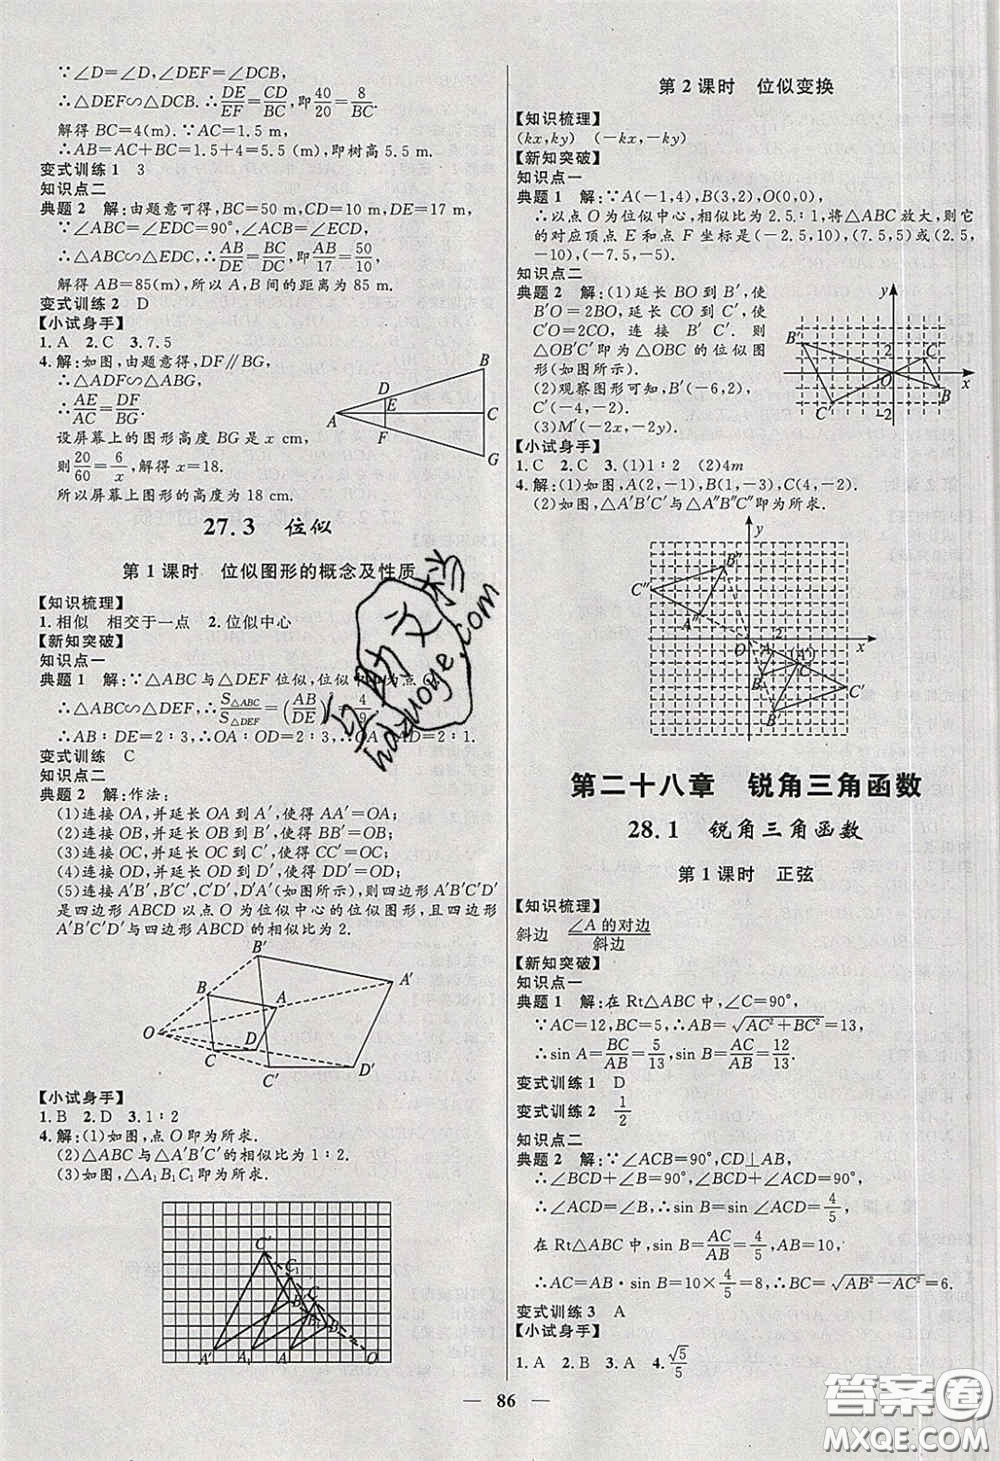 ∵∠D=∠D,∠DEF=∠DCB,
∴△DEF∽△DCB.∴DE/EF=CD/BC,即40/20=8/BC.
解得 BC=4(m).∵AC=1.5 m,
∴AB=AC+BC=1.5+4=5.5 (m),即树高5.5 m.
变式训练1 3
知识点二
典题2 解:由题意可得,BC=50 m,CD=10 m,DE=17 m,
∵∠ABC=∠EDC=90°,∠ACB=∠ECD,
∴△ABC∽△EDC.∴AB/DE=BC/DC,即AB/17=50/10.
解得 AB=85(m),所以 A,B 间的距离为 85 m.
变式训练2 D
【小试身手】
1.A 2.C 3.7.5
4.解:如图,由题意得,DF∥BG,
∴△ADF∽△ABG,
∴AE/AC=DF/BG.
设屏幕上的图形高度 BG 是 x cm,
则20/60=6/x,解得 x=18.
所以屏幕上图形的高度为 18 cm.
A
B
C
D
E
F
G
27.3 位似
第1课时 位似图形的概念及性质
【知识梳理】
1.相似 相交于一点 2.位似中心
【新知突破】
知识点一
典题1 解:∵△ABC 与△DEF 位似,位似中心为点 O,
∴△ABC∽△DEF.∴S△ABC/S△DEF=(AB/DE)²=4/9.
∴AB∶DE=2∶3,∴OA∶OD=2∶3,∴OA∶AD=2∶1.
变式训练 C
知识点二
典题2 解:作法:
(1)连接 OA,并延长 OA 到 A′,使得 AA′=OA;
(2)连接 OB,并延长 OB 到 B′,使得 BB′=OB;
(3)连接 OC,并延长 OC 到 C′,使得 CC′=OC;
(4)连接 OD,并延长 OD 到 D′,使得 DD′=OD;
(5)连接 A′B′,B′C′,C′D′,D′A′(如图所示),则四边形 A′B′C′D′
是四边形 ABCD 以点 O 为位似中心的位似图形,且四边形
A′B′C′D′与四边形 ABCD 的相似比为 2.
B′
A′
B
A
O
C
D
C′
D′
【小试身手】
1.B 2.D 3.1∶2
4.解:(1)如图,点 O 即为所求.
(2)△ABC 与△A′B′C′的相似比为 1∶2.
(3)如图,△A₁B₁C₁ 即为所求.
C′
C₁
C
A′
A₁
A
O
第2课时 位似变换
【知识梳理】
(kx,ky) (-kx,-ky)
【新知突破】
知识点一
典题1 解:∵A(-1,4),B(3,2),O(0,0),
∴以点 O 为位似中心,相似比为 2.5∶1,将△ABC 放大,则它
的对应顶点 E 和点 F 坐标是(-2.5,10),(7.5,5)或(2.5,
-10),(-7.5,-5).
知识点二
典题2 解:(1)延长 BO 到 B′,使
B′O=2BO,延长 CO 到 C′,使
C′O=2CO,连接 B′C′.则
△OB′C′即为△OBC 的位似图
形(如图所示).
(2)观察图形可知,B′(-6,2),
C′(-4,-2).
(3)M′(-2x,-2y).
y
B′
2
C
O
B
x
C′
-2
【小试身手】
1.C 2.C 3.(1)1∶2 (2)4m
4.解:(1)如图,A(2,-1),B(1,-3),C(4,-2).
(2)如图,△A′B′C′与△A″B″C″即为所求.
y
B″
C″
A″
2
O
x
A
(A′)
C
B
C′
B′
第二十八章 锐角三角函数
28.1 锐角三角函数
第1课时 正弦
【知识梳理】
斜边 ∠A的对边/斜边
【新知突破】
知识点一
典题1 解:在 Rt△ABC 中,∠C=90°,
∵AC=12,BC=5,∴AB=√(AC²+BC²)=13,
∴sin A=BC/AB=5/13,sin B=AC/AB=12/13.
变式训练1 D
变式训练2 1/2
知识点二
典题2 解:∵∠ACB=90°,CD⊥AB,
∴∠BCD+∠B=∠BCD+∠ACD=90°,
∴∠B=∠ACD,∴sin B=sin∠ACD=4/5,
在 Rt△ABC 中,sin B=AC/AB=4/5,AB=10,
∴AC=AB·sin B=10×4/5=8,∴BC=√(AB²-AC²)=6.
变式训练3 A
【小试身手】
1.A 2.B 3.A 4.√5/5
— 86 —
答案卷
MXQE.COM